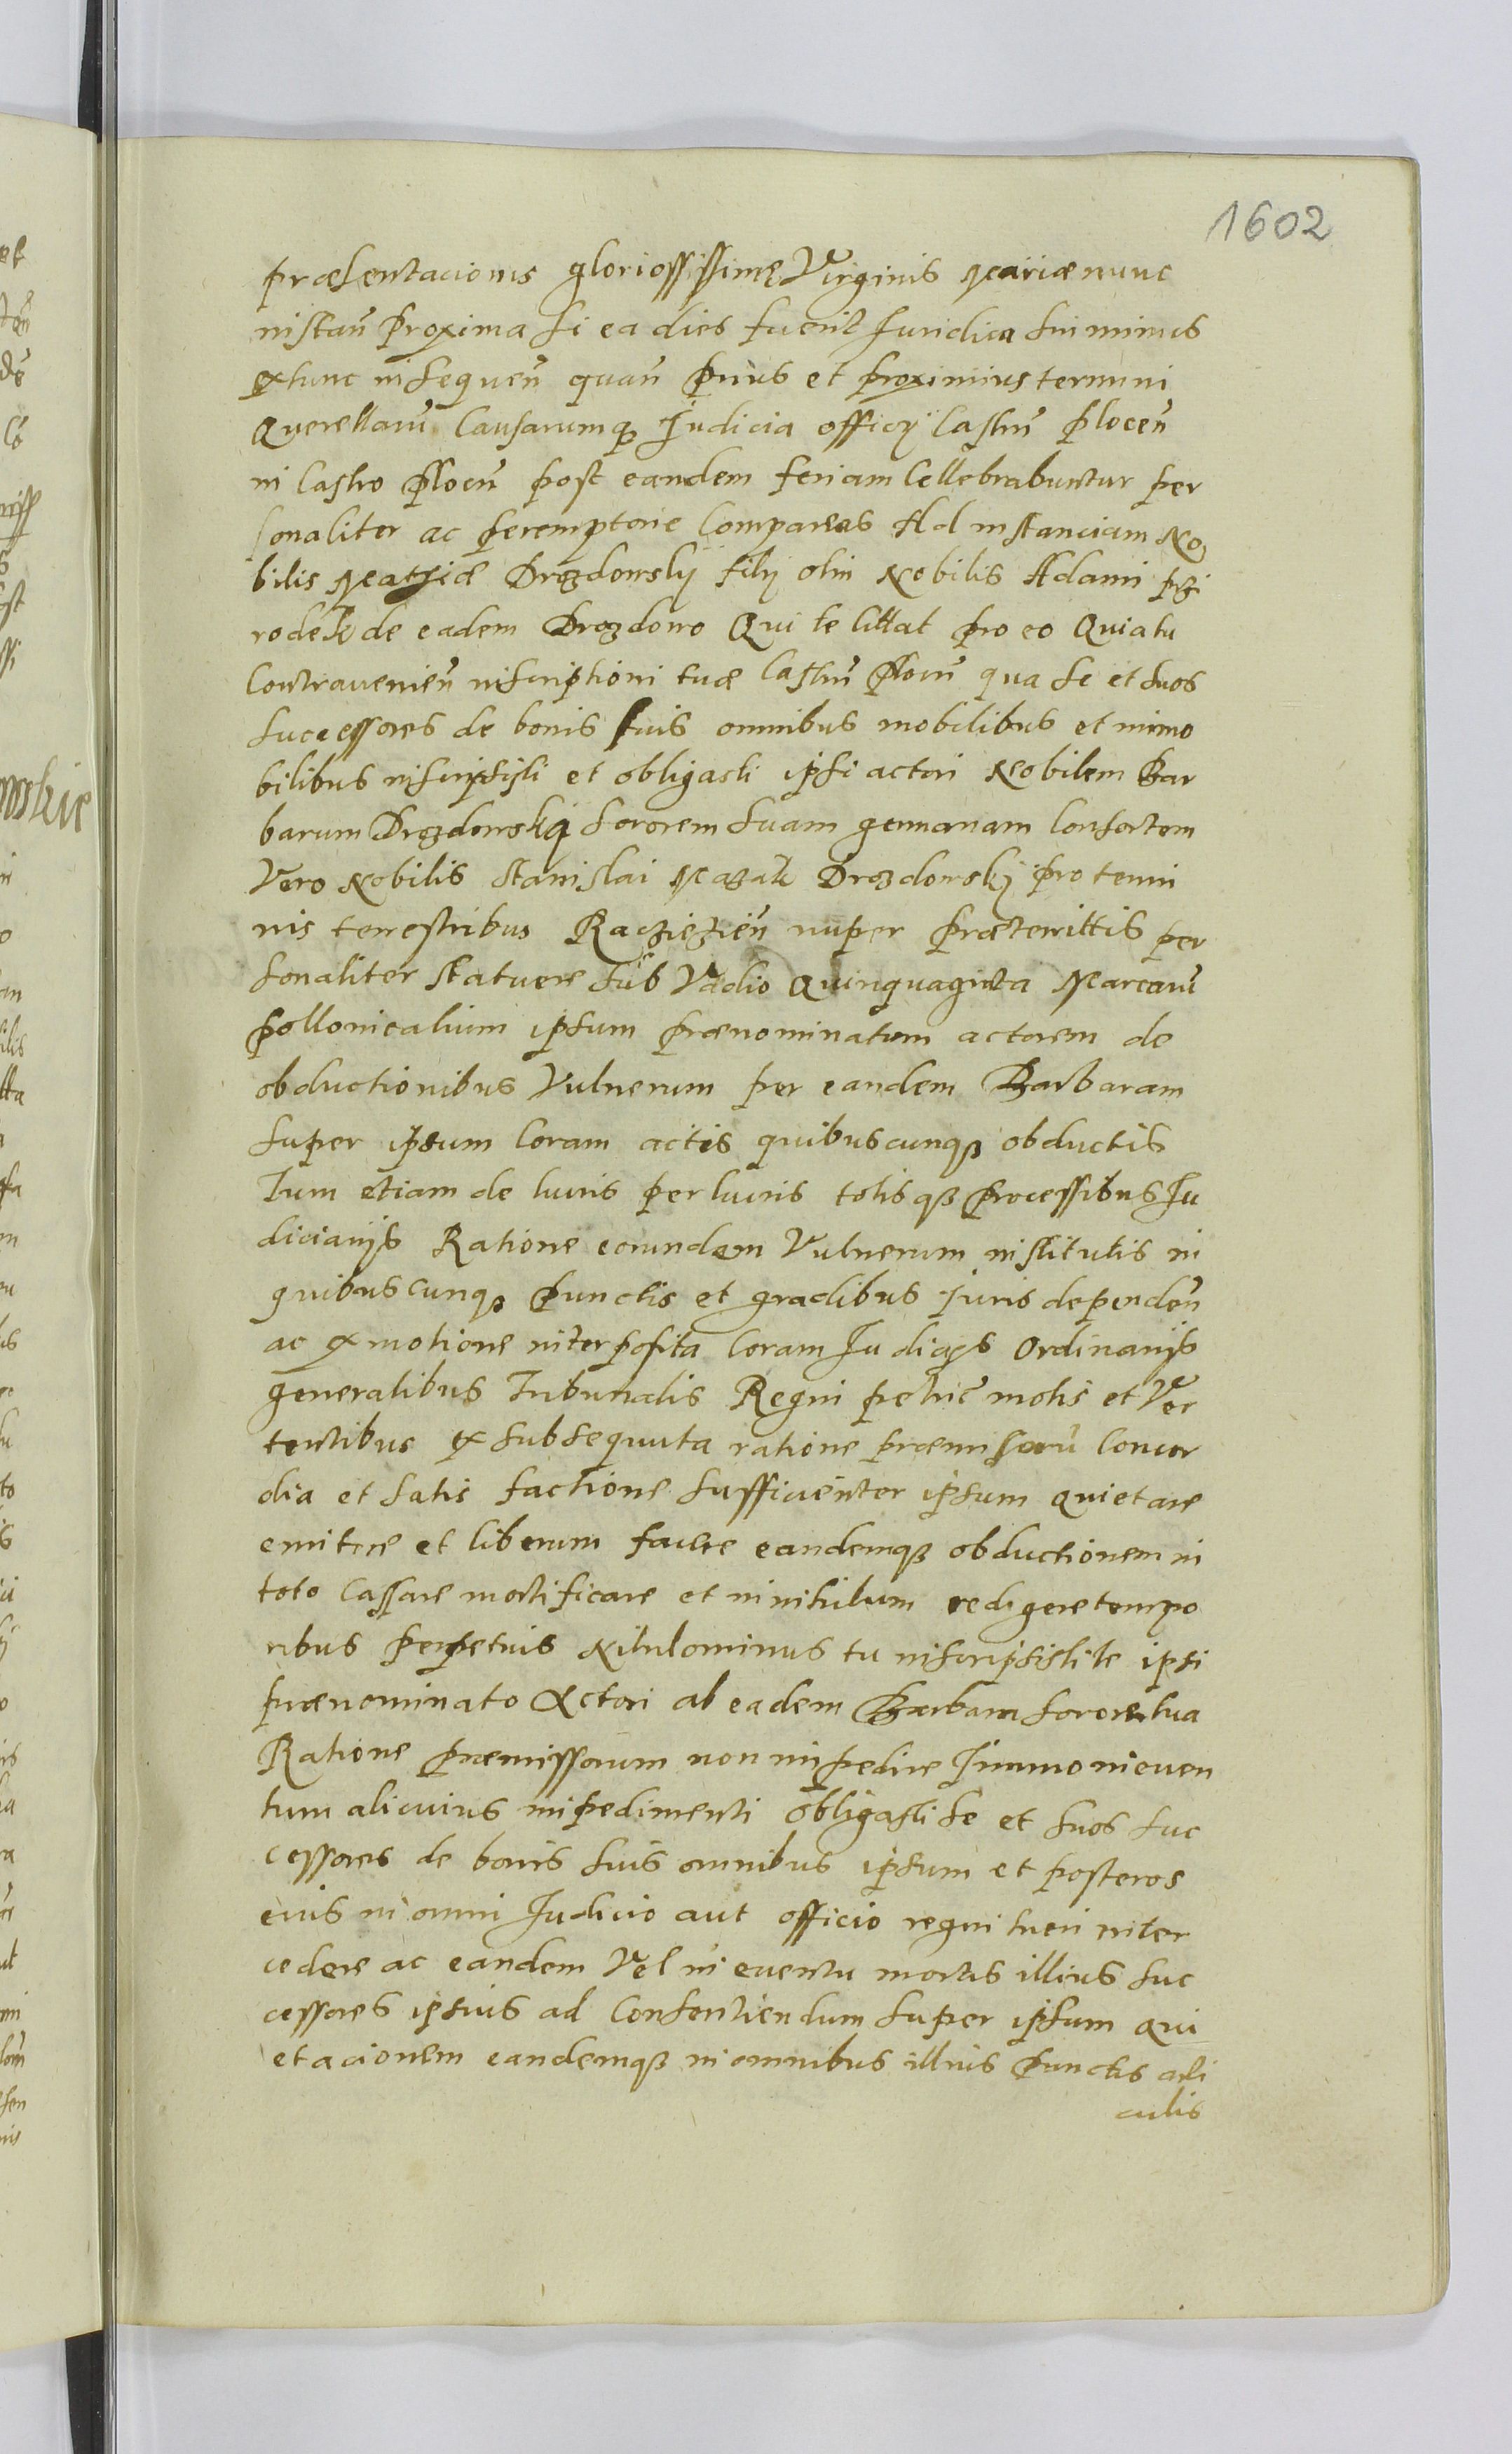 1602
præsentacionis gloriossissimę Virginis Mariæ nunc
instan̄ Proxima si ea dies fuerit Iuridica sin minus
extunc in sequen̄ quan̄ Prius et proximius termini
Querellarū Causarumqꝫ Iudicia officÿ Castren̄ Plocen̄
in Castro Plocen̄ post eandem feriam Cellebrabuntur per
sonaliter ac Peremptorie Compareas Ad instanciam No
bilis Mathiæ Drozdowskÿ filÿ olim Nobilis Adami
de eadem Drozdowo Qui te Cittat Pro eo Quia tu
Contravenien̄ inscriptioni tuæ Castren̄ Plocen̄ qua se et suos
successores de bonis suis omnibus mobilibus et immo
bilibus inscripsisti et obligasti ipsi actori Nobilem Bar
baram Drozdowską sororem suam germanam Consortem
Vero Nobilis Stanislai Drozdowskÿ pro termi
nis terrestribus Racziązien̄ nuper Præterittis per
sonaliter statuere sub Vadio Quinquaginta Marcarū
Pollonicalium ipsum Prænominatum actorem de
obductionibus Vulnerum per eandem Barbaram
super ipsum Coram actis quibuscunqꝫ obductis
Tum etiam de lucris perlucris totisqꝫ Processibus Iu
diciarÿs Ratione eorundem Vulnerum institutis in
quibuscunqꝫ Punctis et gradibus Iuris dependen̄
ac ex motione interposita Coram Iudicÿs Ordinarÿs
generalibus Tribunalis Regni motis et Ver
tentibus ex subsequuta ratione præmissorū Concor
dia et satis factione sufficienter ipsum quietare
emittere et liberum facere eandemqꝫ obductionem in
toto Cassare mortificare et in nihilum redigere tempo
ribus perpetuis Nihilominus tu inscripsisti te ipsi
prænominato Actori ab eadem Barbara sorore tua
Ratione Præmissorum non impedire Immo in even
tum alicuius impedimenti obligasti se et suos suc
cessores de bonis suis omnibus ipsum et posteros
eius in omni Iudicio aut officio regni tueri inter
cedere ac eandem Vel in eventu mortis illius suc
cessores ipsius ad Consentiendum super ipsum qui
etacionem eandemqꝫ in omnibus illius Punctis arti
culis